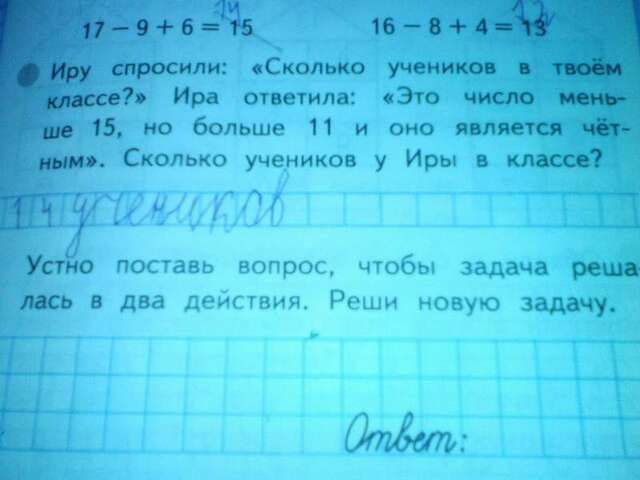 17 − 9 + 6 = 15 14
16 − 8 + 4 = 13 12
Иру спросили: «Сколько учеников в твоём
классе?» Ира ответила: «Это число мень-
ше 15, но больше 11 и оно является чёт-
ным». Сколько учеников у Иры в классе?
14 учеников
Устно поставь вопрос, чтобы задача реша
лась в два действия. Реши новую задачу.
Ответ: